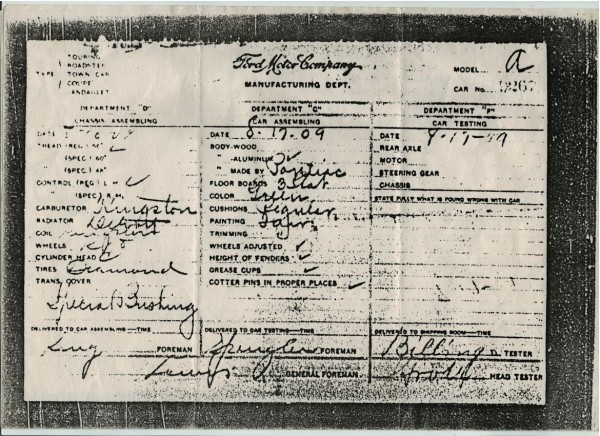 TOURING
ROADSTER
TYPE TOWN CAR
COUPE
LANDAULET
Ford Motor Company
MANUFACTURING DEPT.
MODEL A
CAR No.
DEPARTMENT "D"
CHASSIS ASSEMBLING
DATE
(SPEC.)
(SPEC.)
CONTROL (REG.)
(SPEC.)
CARBURETOR Kingston
RADIATOR Detroit
COIL
WHEELS
CYLINDER HEAD
TIRES Diamond
TRANS. COVER
Special Bushing
DELIVERED TO CAR ASSEMBLING—TIME
King FOREMAN
DEPARTMENT "G"
CAR ASSEMBLING
DATE 8-17-09
BODY-WOOD
" -ALUMINUM ✓
" MADE BY Pontiac
FLOOR BOARDS 3 Slat
COLOR Green
CUSHIONS Regular
PAINTING Fair
TRIMMING
WHEELS ADJUSTED ✓
HEIGHT OF FENDERS ✓
GREASE CUPS ✓
COTTER PINS IN PROPER PLACES ✓
DELIVERED TO CAR TESTING—TIME
Spangler FOREMAN
GENERAL FOREMAN
DEPARTMENT "F"
CAR TESTING
DATE 8-17-09
REAR AXLE
MOTOR
STEERING GEAR
CHASSIS
STATE FULLY WHAT IS FOUND WRONG WITH CAR
DELIVERED TO SHIPPING ROOM—TIME
TESTER
HEAD TESTER